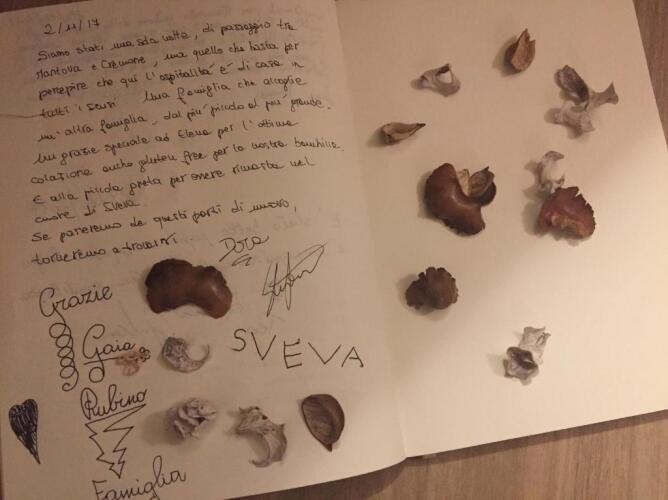 2/11/17
Siamo stati una sola notte, di passaggio tra
Mantova e Cremona, ma quello che basta per
percepire che qui l'ospitalità è di casa in
tutti i sensi. Una famiglia che accoglie
un'altra famiglia, dal più piccolo al più grande.
Un grazie speciale ad Elena per l'ottima
colazione anche gluten free per la nostra bambina.
E alla piccola Greta per essere rimasta nel
cuore di Sveva.
Se passeremo da questi posti di nuovo,
torneremo a trovarvi.
Dora
Grazie
Gaia
SVEVA
Rubino
Famiglia